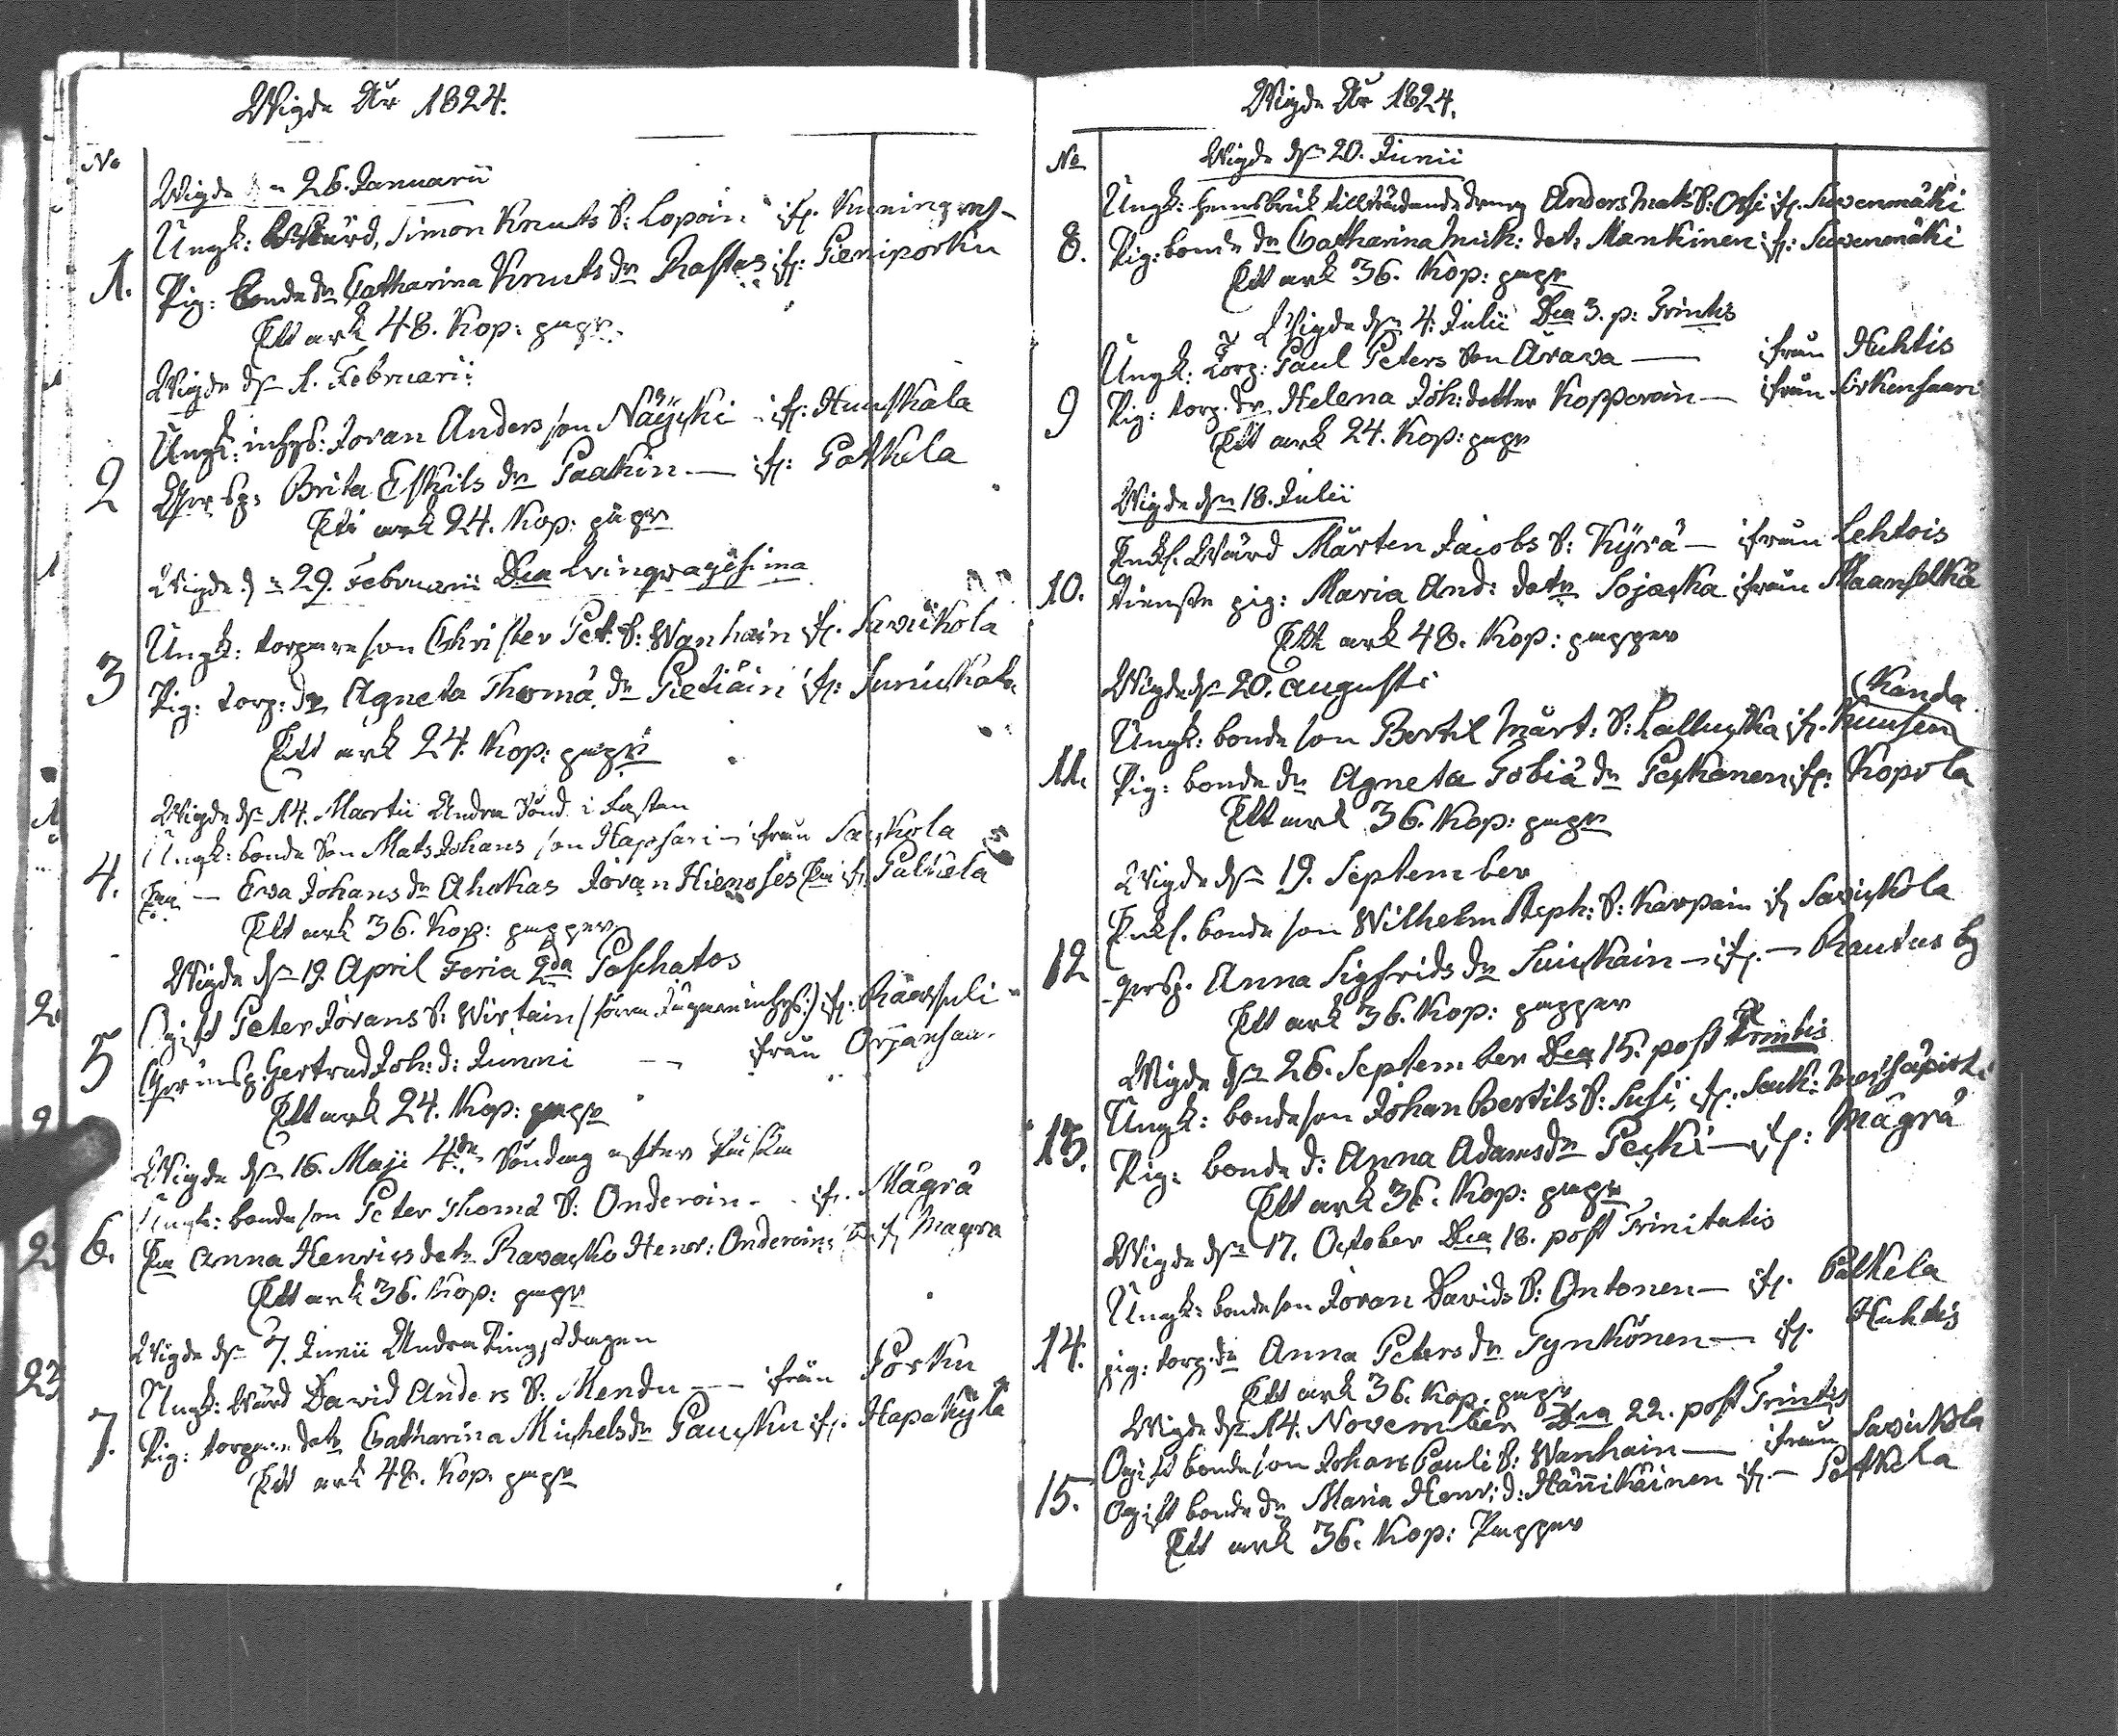 Wigde År 1824.
No
Wigde d. 26. Januarii
1. Ungk: Wärd, Simon Knuts S: Lopoin ifr.
Pig: bonde dr Catharina Knuts dr Rastas ifr: Pieniporku
Ett ark 48. Kop: papr.
Wigde dn 1. Februarii
Ungk: inhys: Joran Anders son Näÿski ifr: Hunskala
2 Brita Eskils dr Paakin — ifr: Potkela
Ett ark 24. Kop: papr
Wigde dn 29. Februarii Dca Qvinqvagesima
Ungk: torpare son Christer Pet. S: Wanhain ifr. Saviikola
3 Pig: torp: dr Agneta Thomæ dr Pietiäin ifr:
Ett ark 24. Kop: papr
Wigde dn 14. Martii Andra Sönd. i Fastan
Ungk: bonde Son Mats Johans son Hapsari — ifrån
4. Enk. — Ewa Johans dr Ahokas Jöran Hienoses Enk. ifr. Palkela
Ett ark 36. Kop: papper
Wigde dn 19. April Feria 2da Paschatos
Ogift Peter Jörans S: Wirtain ifr:
5 Gertrud Joh: d: Junni — ifrån Orjansaa.
Ett ark 24. Kop: papr
Wigde dn 16. Maji 4de Söndag efter Påska
Ungk: bonde son Peter Thomæ S: Onderoin - - ifr. Mägrä
6. Enk. Anna Henrics dotr Ravasko Henr: Onderoins Enk. ifr Mägrä
Ett ark 36. Kop: papr
Wigde dn 7. Junii Andra Pingstdagen
Ungk: Wärd David Anders S: Mendu — ifrån Porku
7. Pig: torpare dotr Catharina Michels dr Pausku ifr. Hapakÿlä
Ett ark 48. Kop. papr
Wigde År 1824.
No
Wigde dn 20. Junii
Ungk: hemsbruk tillträdande dreng Anders Mats S: Ossi ifr. Suvenmäki
8. Pig: bonde dr Catharina Mich: dotr: Mankinen ifr: Suvenmäki
Ett ark 36. Kop: papr
Wigde dn 4. Julii Dca 3. p: Trintis
Ungk: Torp: Paul Peters Son Ärava — ifrån Huhtis
9 Pig: torp. dr Helena Joh: dotter Kopperoin — ifrån Kirkensaari
Ett ark 24. Kop: papr
Wigde dn 18. Julii
Enkl. Wärd Mårten Jacobs S: Kÿrä — ifrån Lehtois
10. Tienste pig: Maria And: dotr Sojaska ifrån Maanselkä
Ett ark 48. Kop: papper
Wigde dn 20. Augusti
(Kanda
Ungk: bonde son Bertil Mårt: S: Lallukka ifr. Kuusen
11. Pig: bonde dr Agneta Tobiæ dr Peskonen ifr: Kopola
Ett ark 36. Kop: papr
Wigde dn 19. September
Enkl. bonde son Wilhelm Steph: S: Karpain ifr Saviskola
12 Anna Sigfrids dr Suiskain — ifr. — Rautus by
Ett ark 36. Kop: papper
Wigde dn 26. September Dca 15. post Trintis
Ungk: bonde son Johan Bertils S: Susi, ifr:
13. Pig: bonde d: Anna Adams dr Peski — ifr: Mägrä
Ett ark 36. Kop: papr
Wigde dn 17. October Dca 18. post Trinitatis
Ungk: bonde son Jöran Davids S: Ontonen — ifr. Palkela
14. pig: torp. dr Anna Peters dr Tynkönen — ifr. Huhtis
Ett ark 36. Kop: papr
Wigde dn 14. November Dca 22. post Trintis
Ogift bonde son Johan Pauli S: Wanhain — ifrån Savikola
15. Ogift bonde dr Maria Henr: d: Hännikäinen ifr. — Potkela
Ett ark 36. Kop: Papper